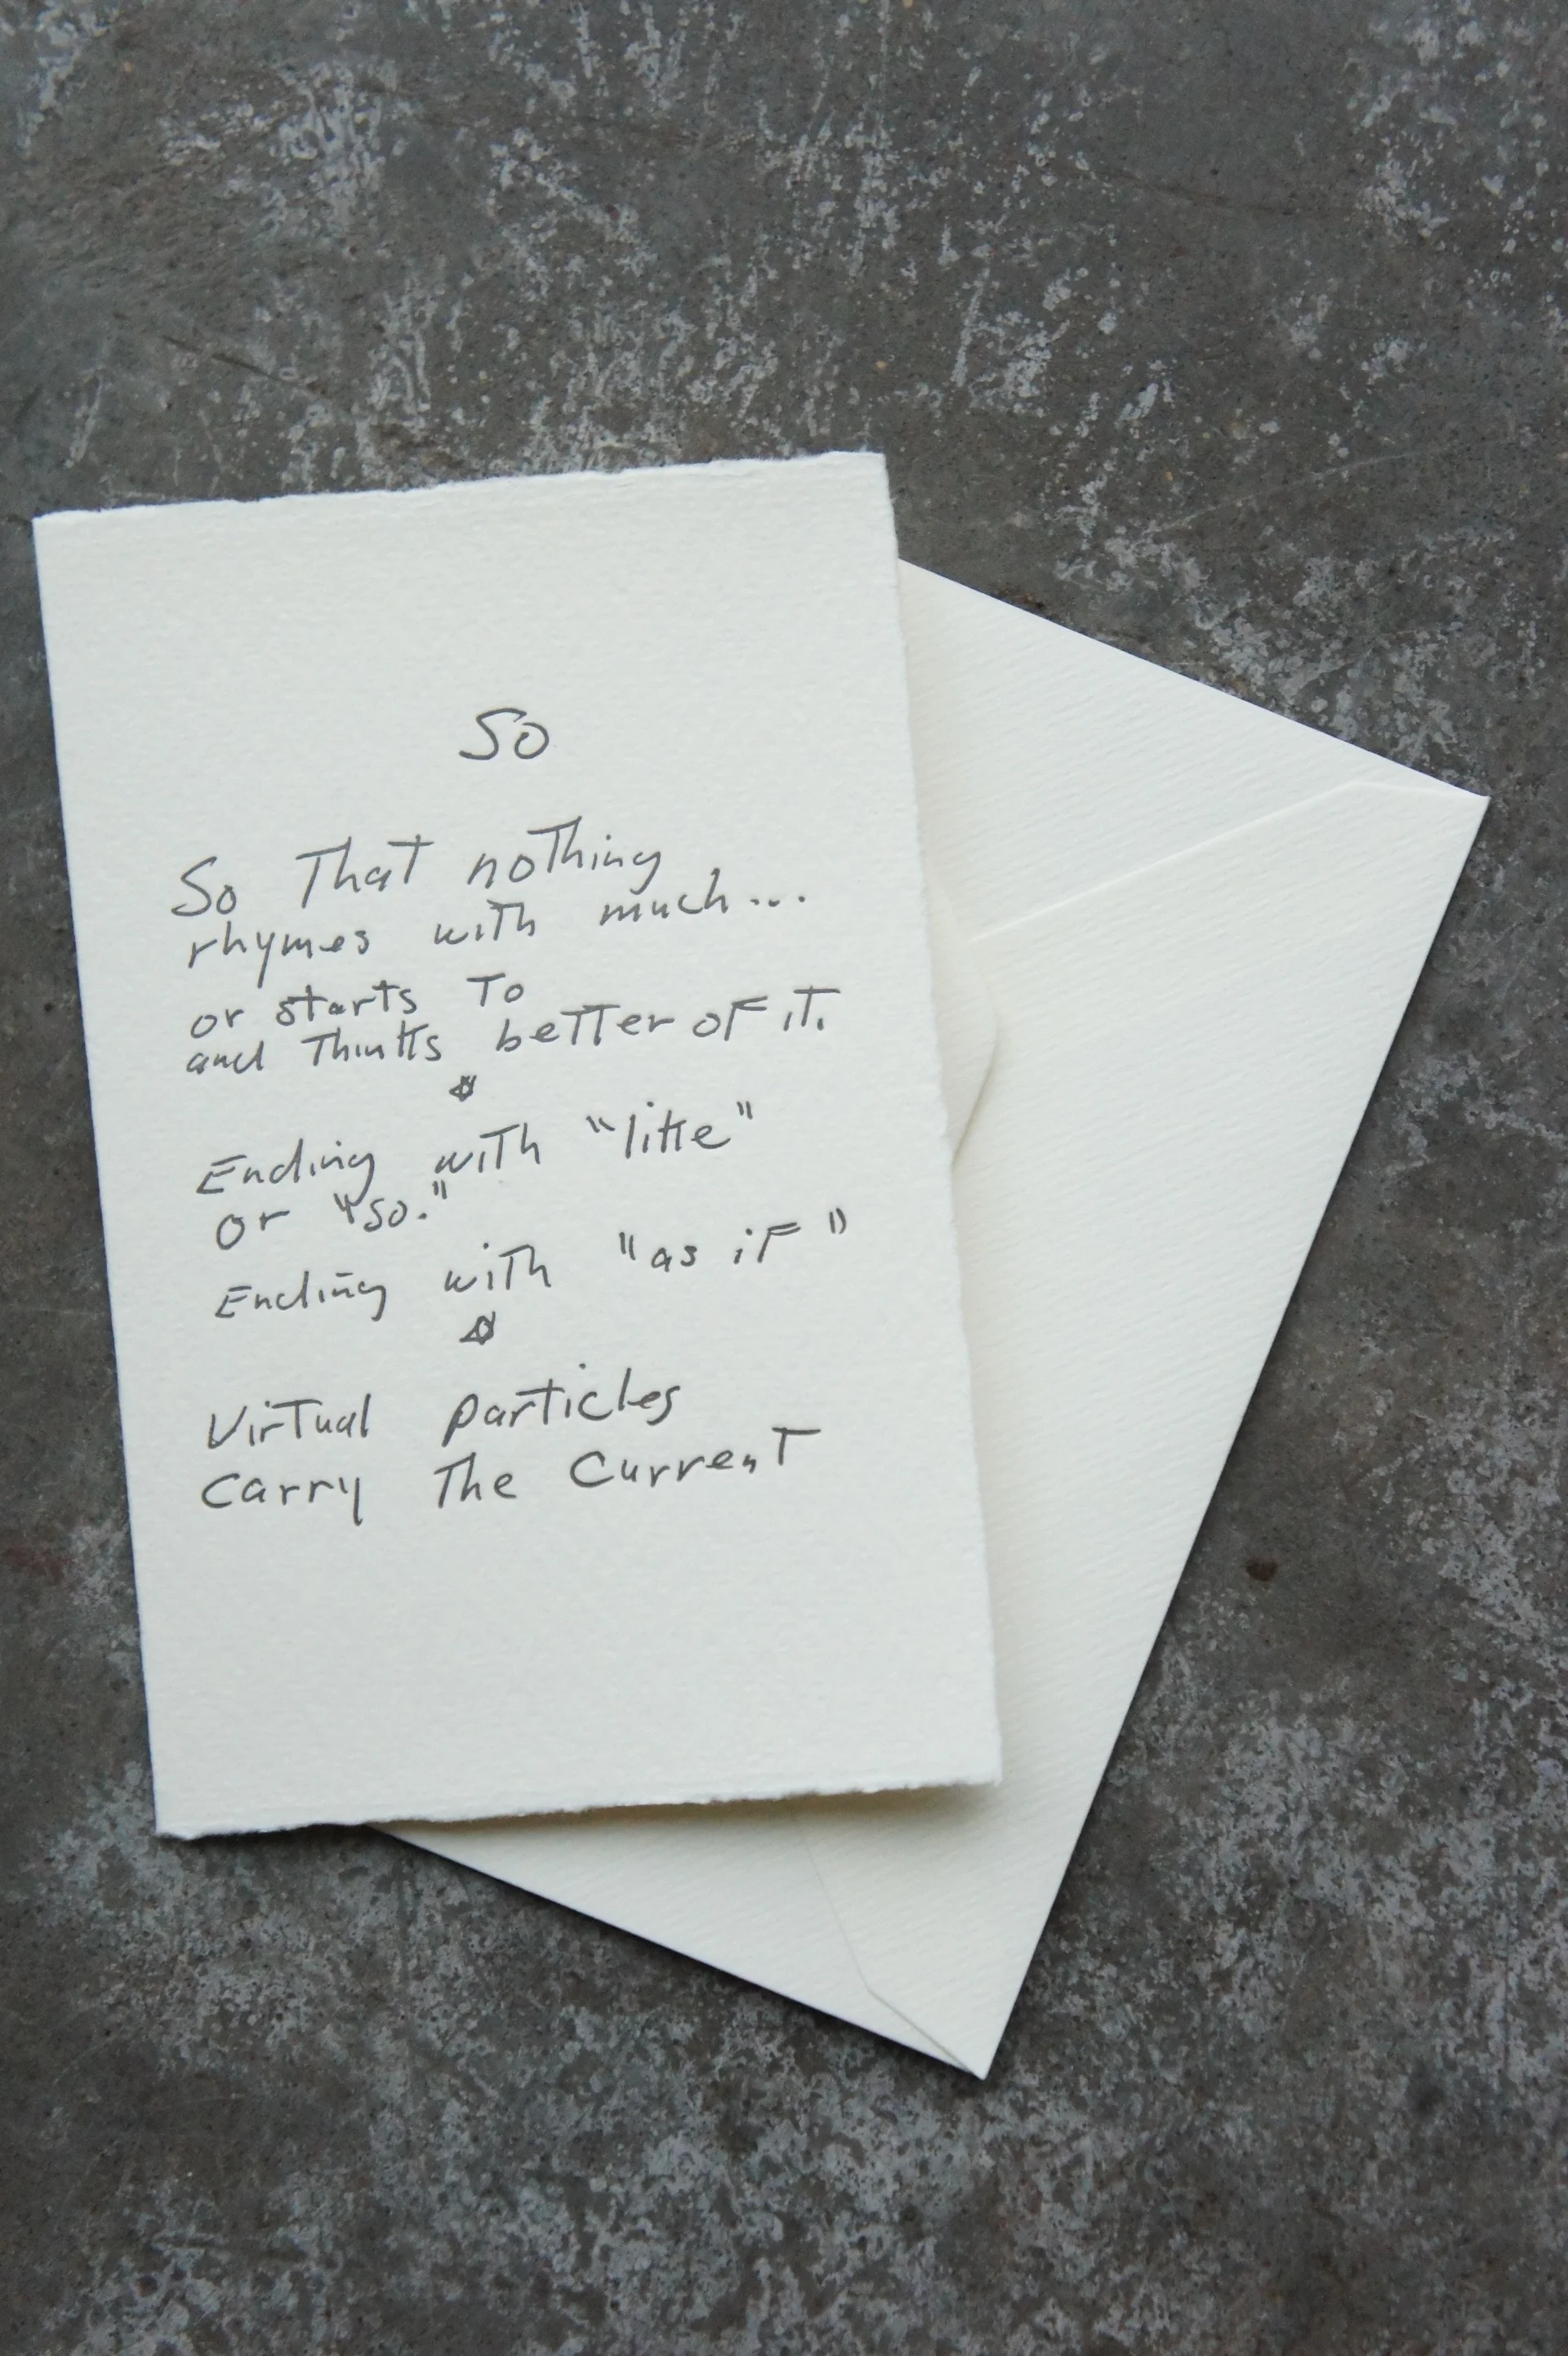 So
So That nothing
rhymes with much...
or starts To
and Thinks better of it.
Ending with "like"
or "so."
Ending with "as if"
Virtual particles
Carry The Current